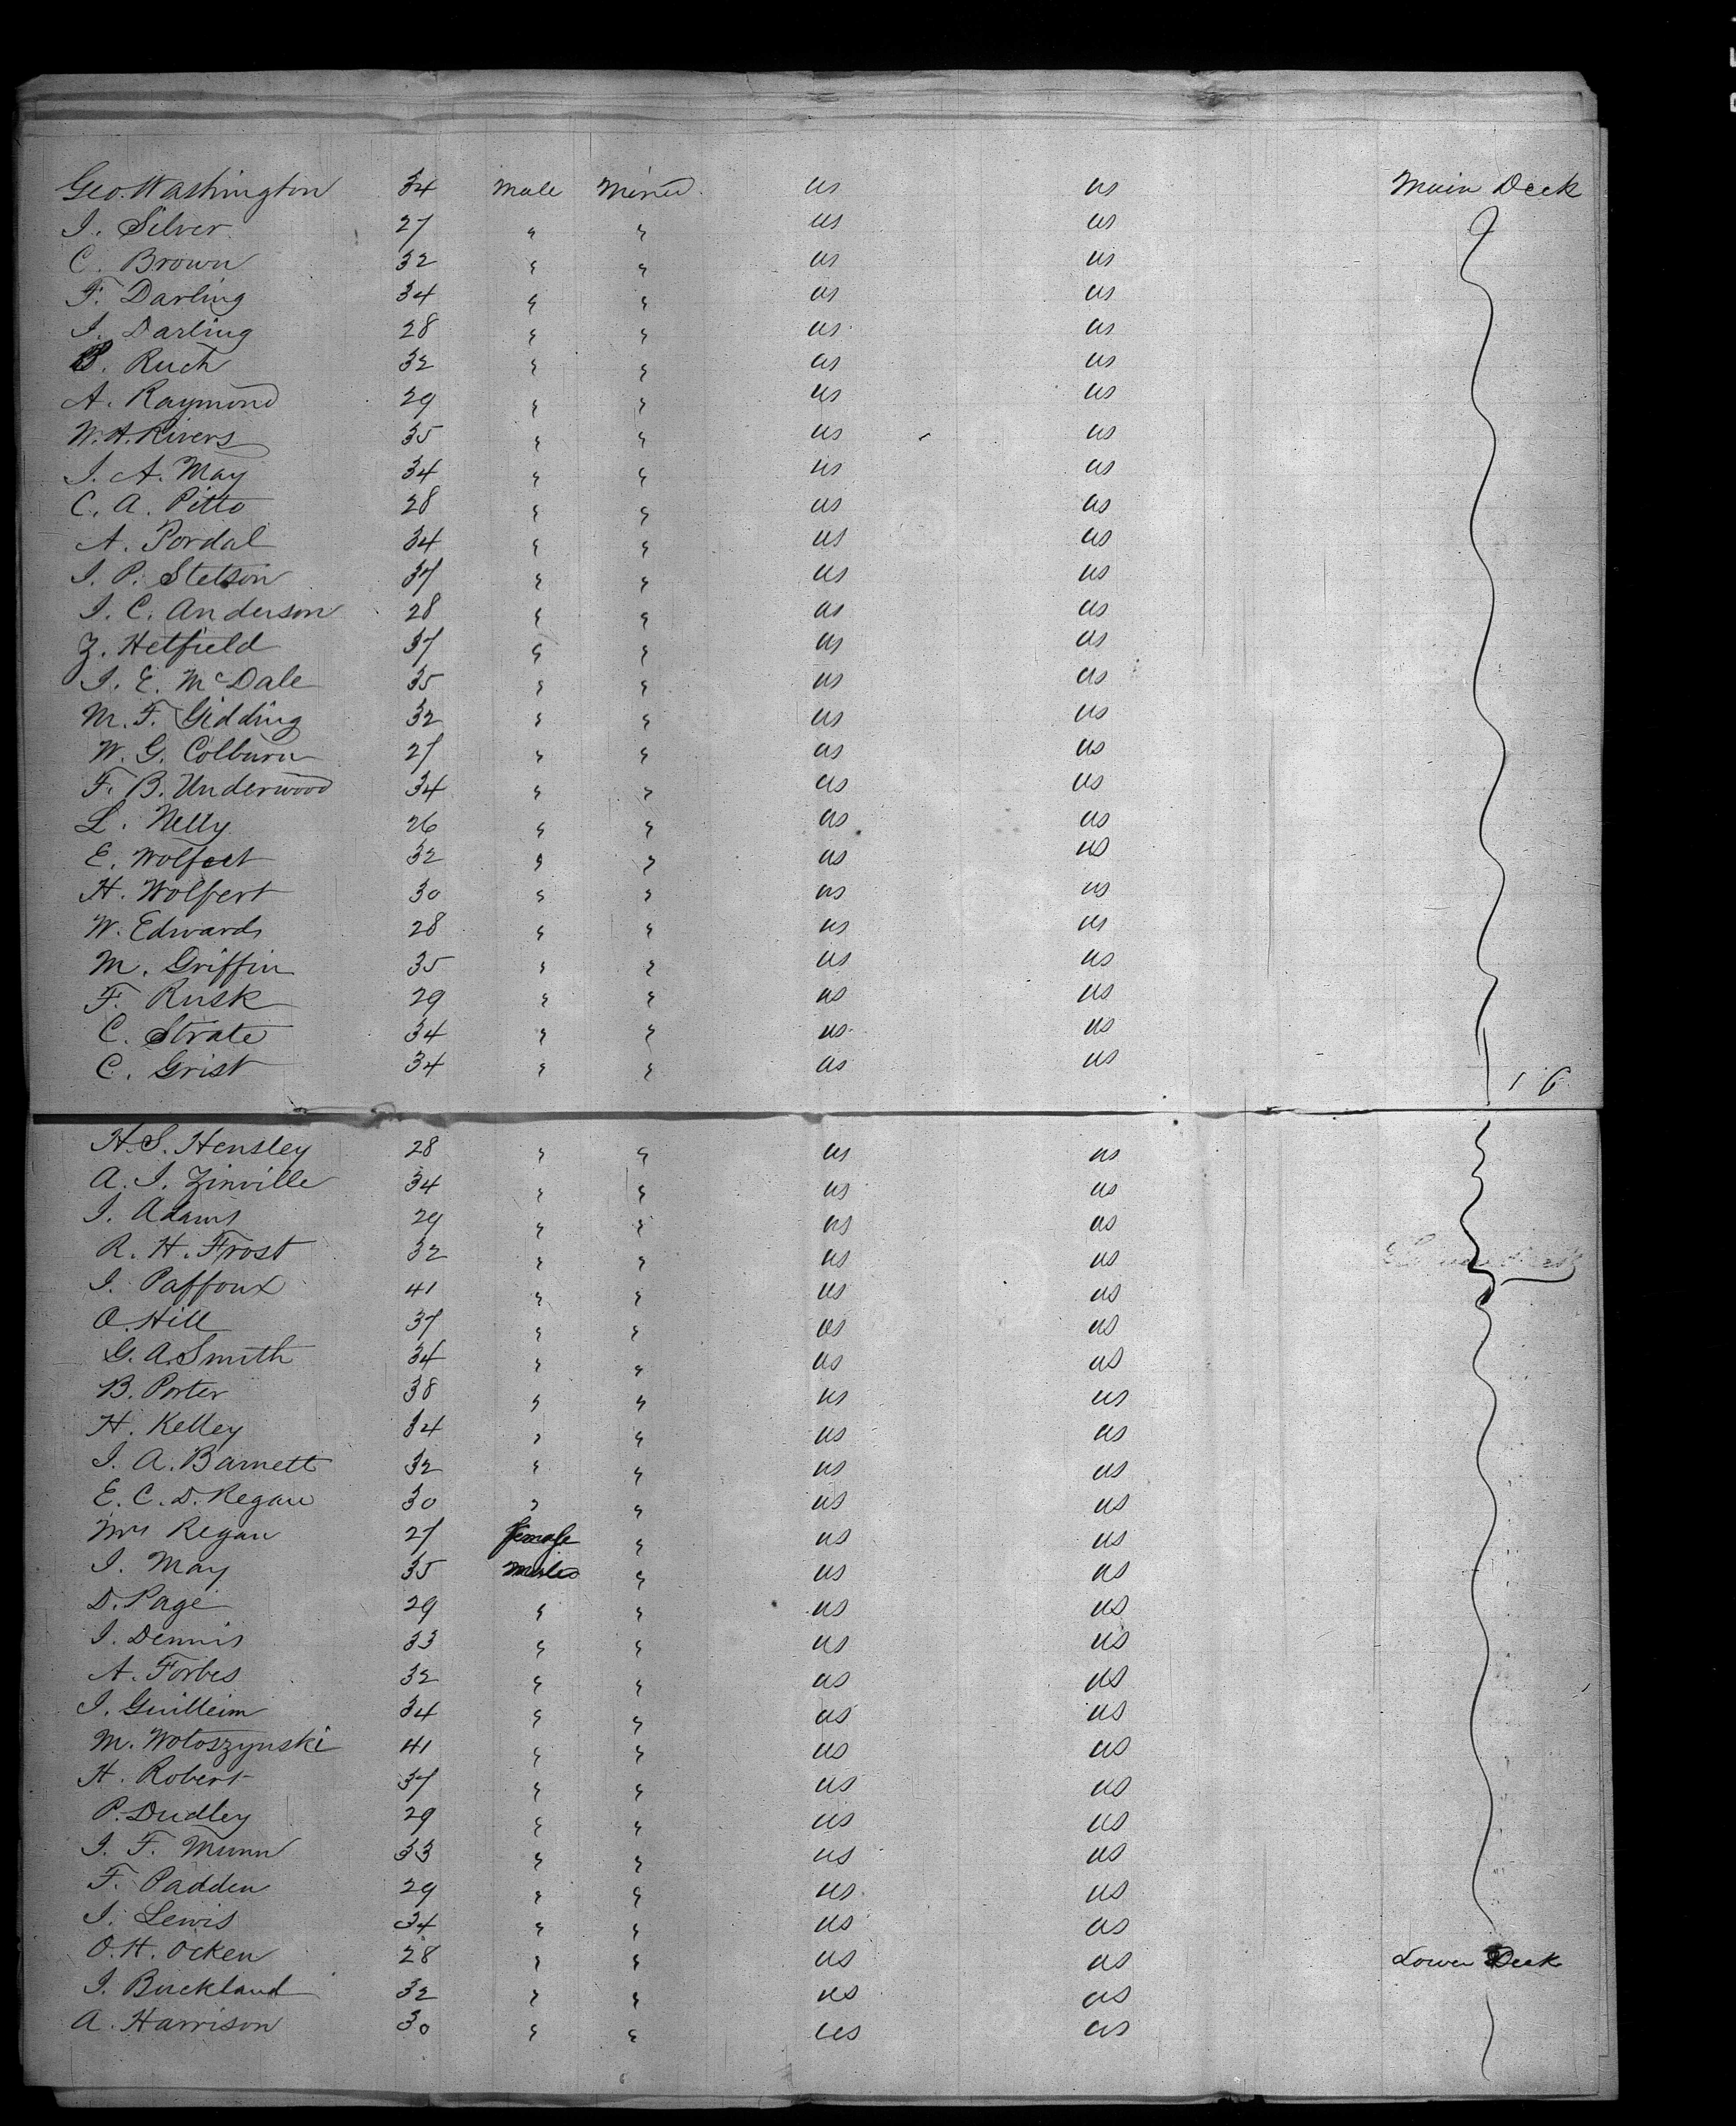 Geo. Washington 34 Male Miner us us Main Deck
I. Silver 27 " " us us
C. Brown 32 " " us us
F. Darling 34 " " us us
I. Darling 28 " " us us
B. Ruch 32 " " us us
A. Raymond 29 " " us us
W. H. Rivers 35 " " us us
I. A. May 34 " " us us
C. A. Pitto 28 " " us us
A. Pordal 34 " " us us
I. P. Stetson 37 " " us us
I. C. Anderson 28 " " us us
Z. Hetfield 37 " " us us
I. E. McDale 35 " " us us
M. F. Gidding 32 " " us us
W. G. Colburn 27 " " us us
F. B. Underwood 34 " " us us
L. Nelly 26 " " us us
E. Wolfert 32 " " us us
H. Wolfert 30 " " us us
W. Edwards 28 " " us us
M. Griffin 35 " " us us
F. Rusk 29 " " us us
C. Strate 34 " " us us
C. Grist 34 " " us us
16
H. S. Hensley 28 " " us us
A. I. Zinville 34 " " us us
I. Adams 29 " " us us
R. H. Frost 32 " " us us
I. Paffoux 41 " " us us
O. Hill 37 " " us us
G. A. Smith 34 " " us us
B. Porter 38 " " us us
H. Kelley 34 " " us us
I. A. Barnett 32 " " us us
E. C. D. Regan 30 " " us us
Mrs Regan 27 female " us us
I. May 35 male " us us
D. Page 29 " " us us
I. Dennis 33 " " us us
A. Forbes 32 " " us us
I. Guilleim 34 " " us us
M. Wotoszynski 41 " " us us
H. Robert 37 " " us us
P. Dudley 29 " " us us
I. F. Munn 33 " " us us
F. Padden 29 " " us us
I. Lewis 34 " " us us
O. H. Ocken 28 " " us us Lower Deck
I. Buckland 32 " " us us
A. Harrison 30 " " us us